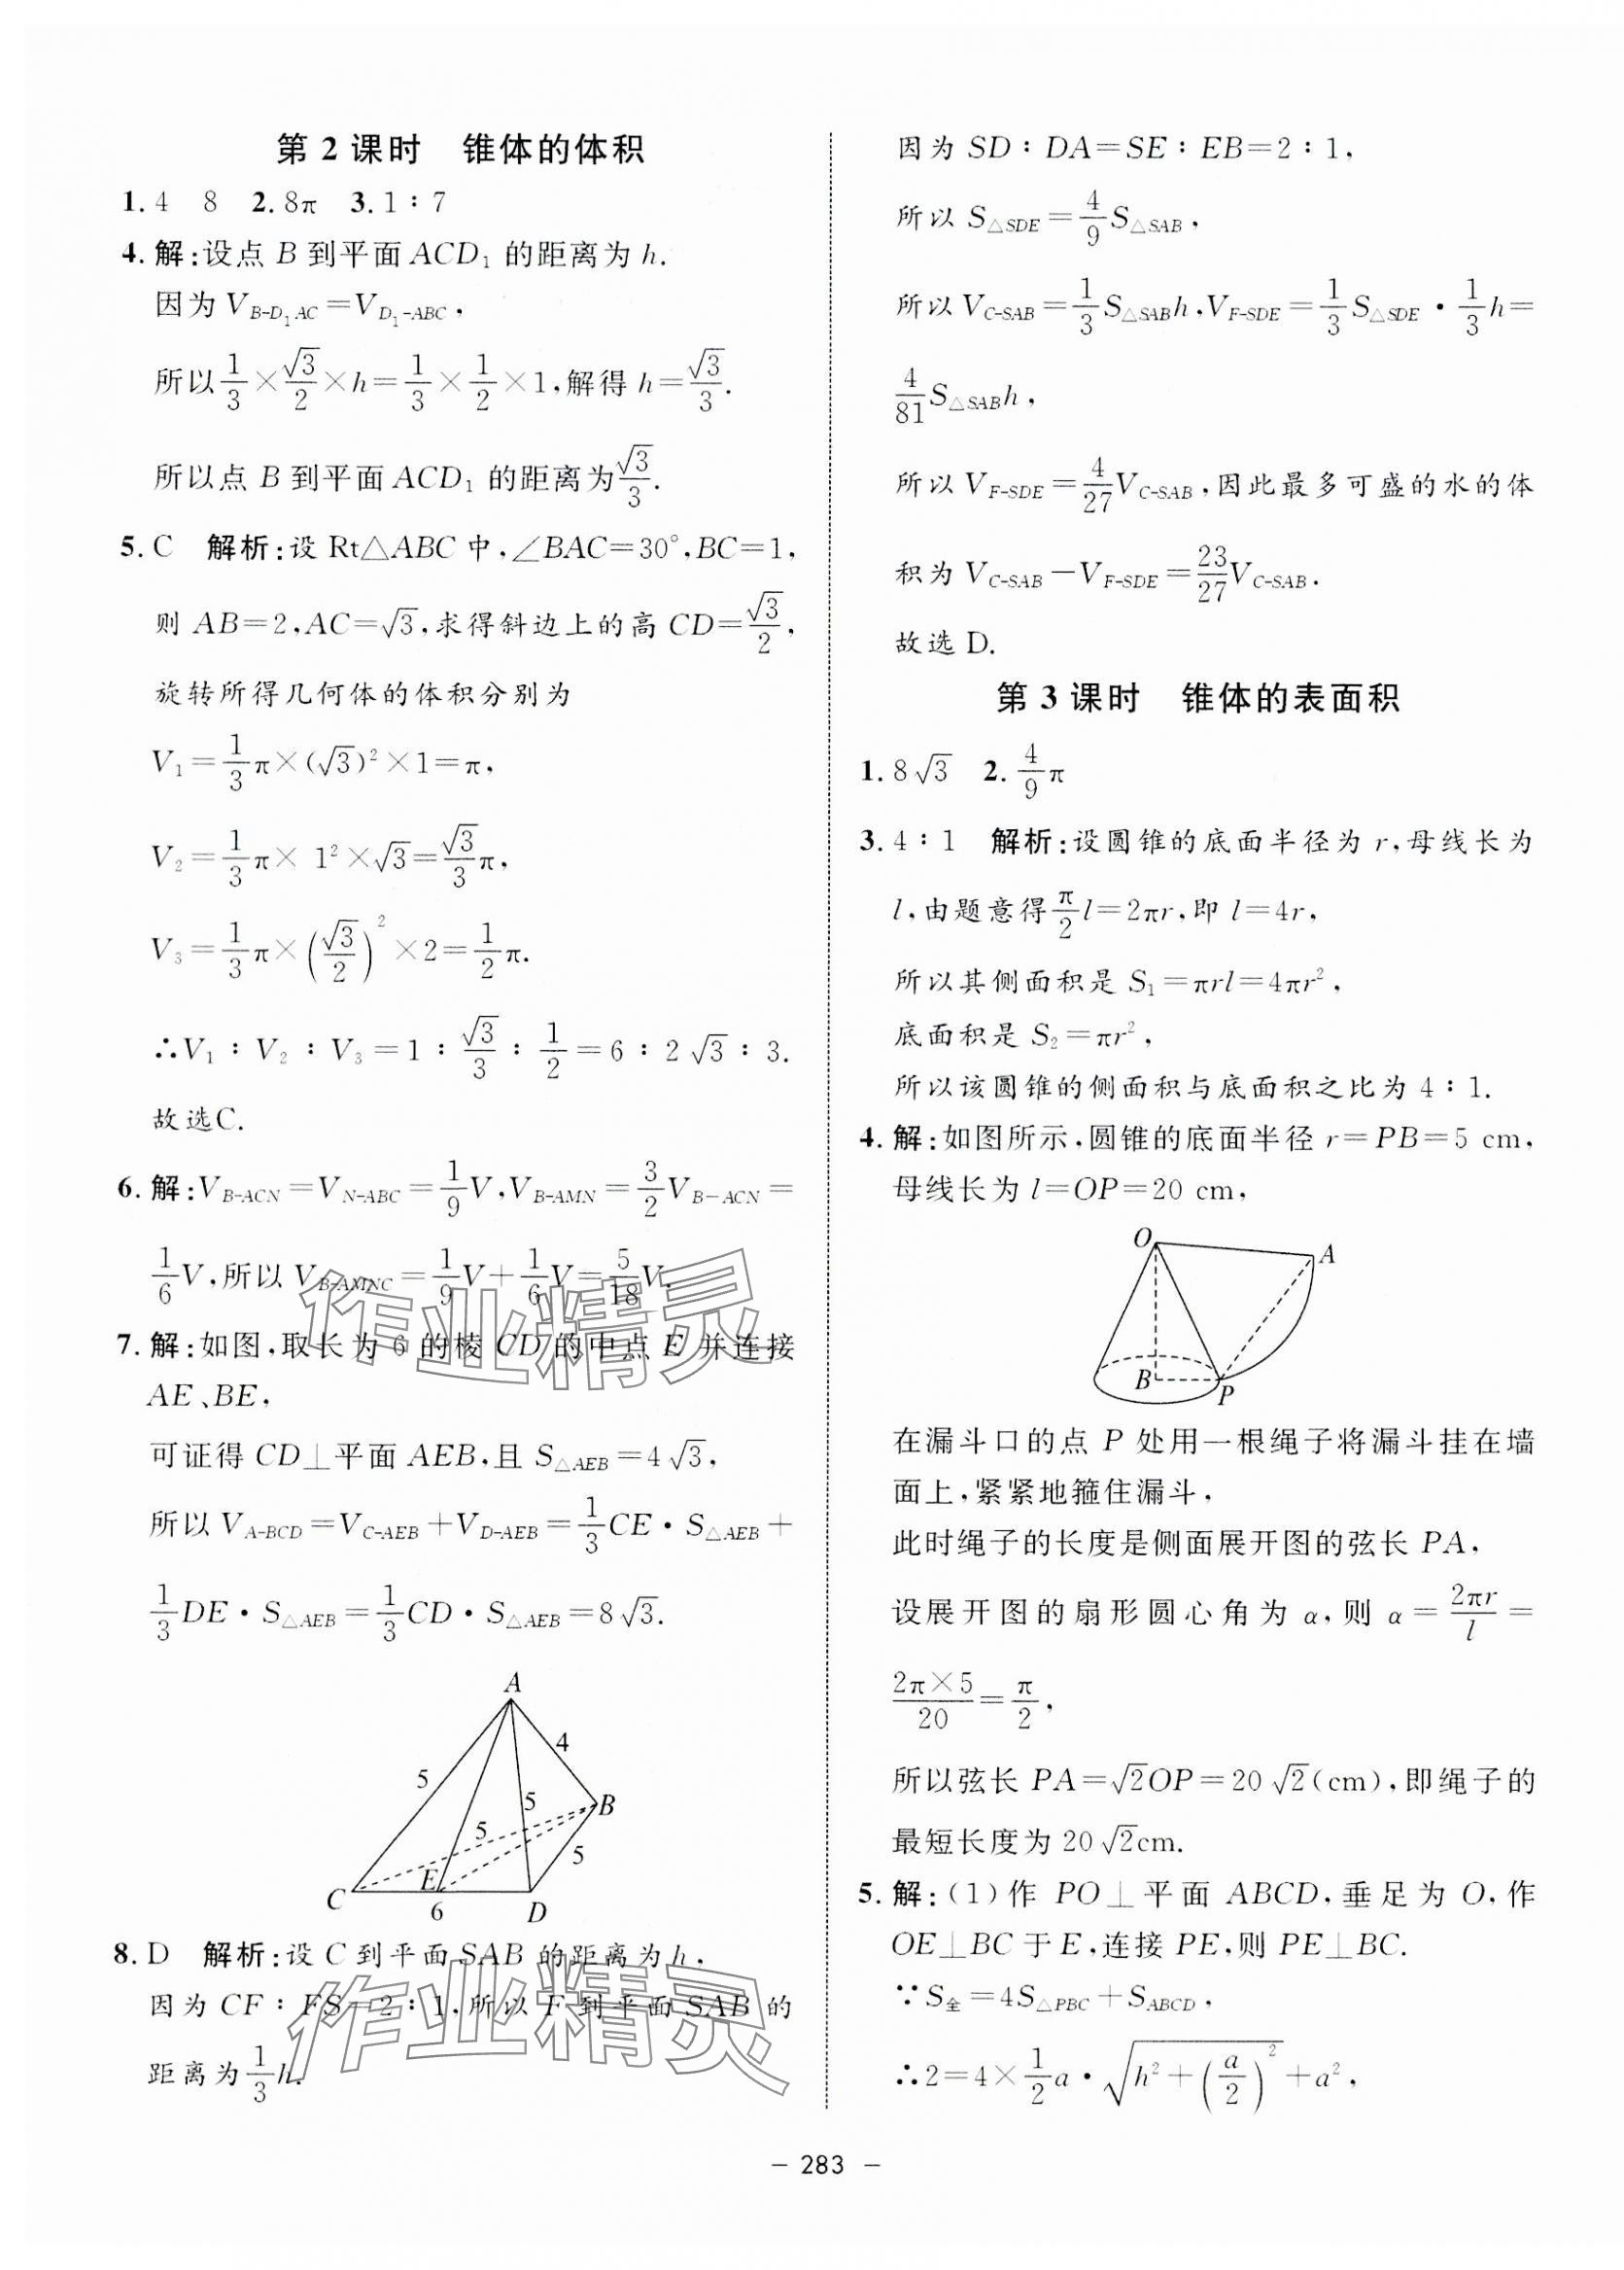 第 2 课时　锥体的体积
1. 4　8　2. 8π　3. 1∶7
4. 解:设点 B 到平面 ACD₁ 的距离为 h.
因为 V_{B-D₁AC}=V_{D₁-ABC},
所以 1/3×√3/2×h=1/3×1/2×1,解得 h=√3/3.
所以点 B 到平面 ACD₁ 的距离为√3/3.
5. C　解析:设 Rt△ABC 中,∠BAC=30°,BC=1,
则 AB=2,AC=√3,求得斜边上的高 CD=√3/2,
旋转所得几何体的体积分别为
V₁=1/3π×(√3)²×1=π,
V₂=1/3π×1²×√3=√3/3π,
V₃=1/3π×(√3/2)²×2=1/2π.
∴V₁∶V₂∶V₃=1∶√3/3∶1/2=6∶2√3∶3.
故选C.
6. 解:V_{B-ACN}=V_{N-ABC}=1/9V,V_{B-AMN}=3/2V_{B-ACN}=
1/6V,所以 V_{B-AMNC}=1/9V+1/6V=5/18V.
7. 解:如图,取长为 6 的棱 CD 的中点 E 并连接
AE、BE,
可证得 CD⊥平面 AEB,且 S_{△AEB}=4√3,
所以 V_{A-BCD}=V_{C-AEB}+V_{D-AEB}=1/3CE·S_{△AEB}+
1/3DE·S_{△AEB}=1/3CD·S_{△AEB}=8√3.
A
4
5
5
B
5
5
E
C
6
D
8. D　解析:设 C 到平面 SAB 的距离为 h,
因为 CF∶FS=2∶1,所以 F 到平面 SAB 的
距离为1/3h.
因为 SD∶DA=SE∶EB=2∶1,
所以 S_{△SDE}=4/9S_{△SAB},
所以 V_{C-SAB}=1/3S_{△SAB}h,V_{F-SDE}=1/3S_{△SDE}·1/3h=
4/81S_{△SAB}h,
所以 V_{F-SDE}=4/27V_{C-SAB},因此最多可盛的水的体
积为 V_{C-SAB}-V_{F-SDE}=23/27V_{C-SAB}.
故选 D.
第 3 课时　锥体的表面积
1. 8√3　2. 4/9π
3. 4∶1　解析:设圆锥的底面半径为 r,母线长为
l,由题意得π/2l=2πr,即 l=4r,
所以其侧面积是 S₁=πrl=4πr²,
底面积是 S₂=πr²,
所以该圆锥的侧面积与底面积之比为 4∶1.
4. 解:如图所示,圆锥的底面半径 r=PB=5 cm,
母线长为 l=OP=20 cm,
O
A
B
P
在漏斗口的点 P 处用一根绳子将漏斗挂在墙
面上,紧紧地箍住漏斗,
此时绳子的长度是侧面展开图的弦长 PA,
设展开图的扇形圆心角为 α,则 α=2πr/l=
2π×5/20=π/2,
所以弦长 PA=√2OP=20√2(cm),即绳子的
最短长度为 20√2cm.
5. 解:(1)作 PO⊥平面 ABCD,垂足为 O,作
OE⊥BC 于 E,连接 PE,则 PE⊥BC.
∵S_全=4S_{△PBC}+S_{ABCD},
∴2=4×1/2a·√(h²+(a/2)²)+a²,
— 283 —
作业精灵
作业精灵